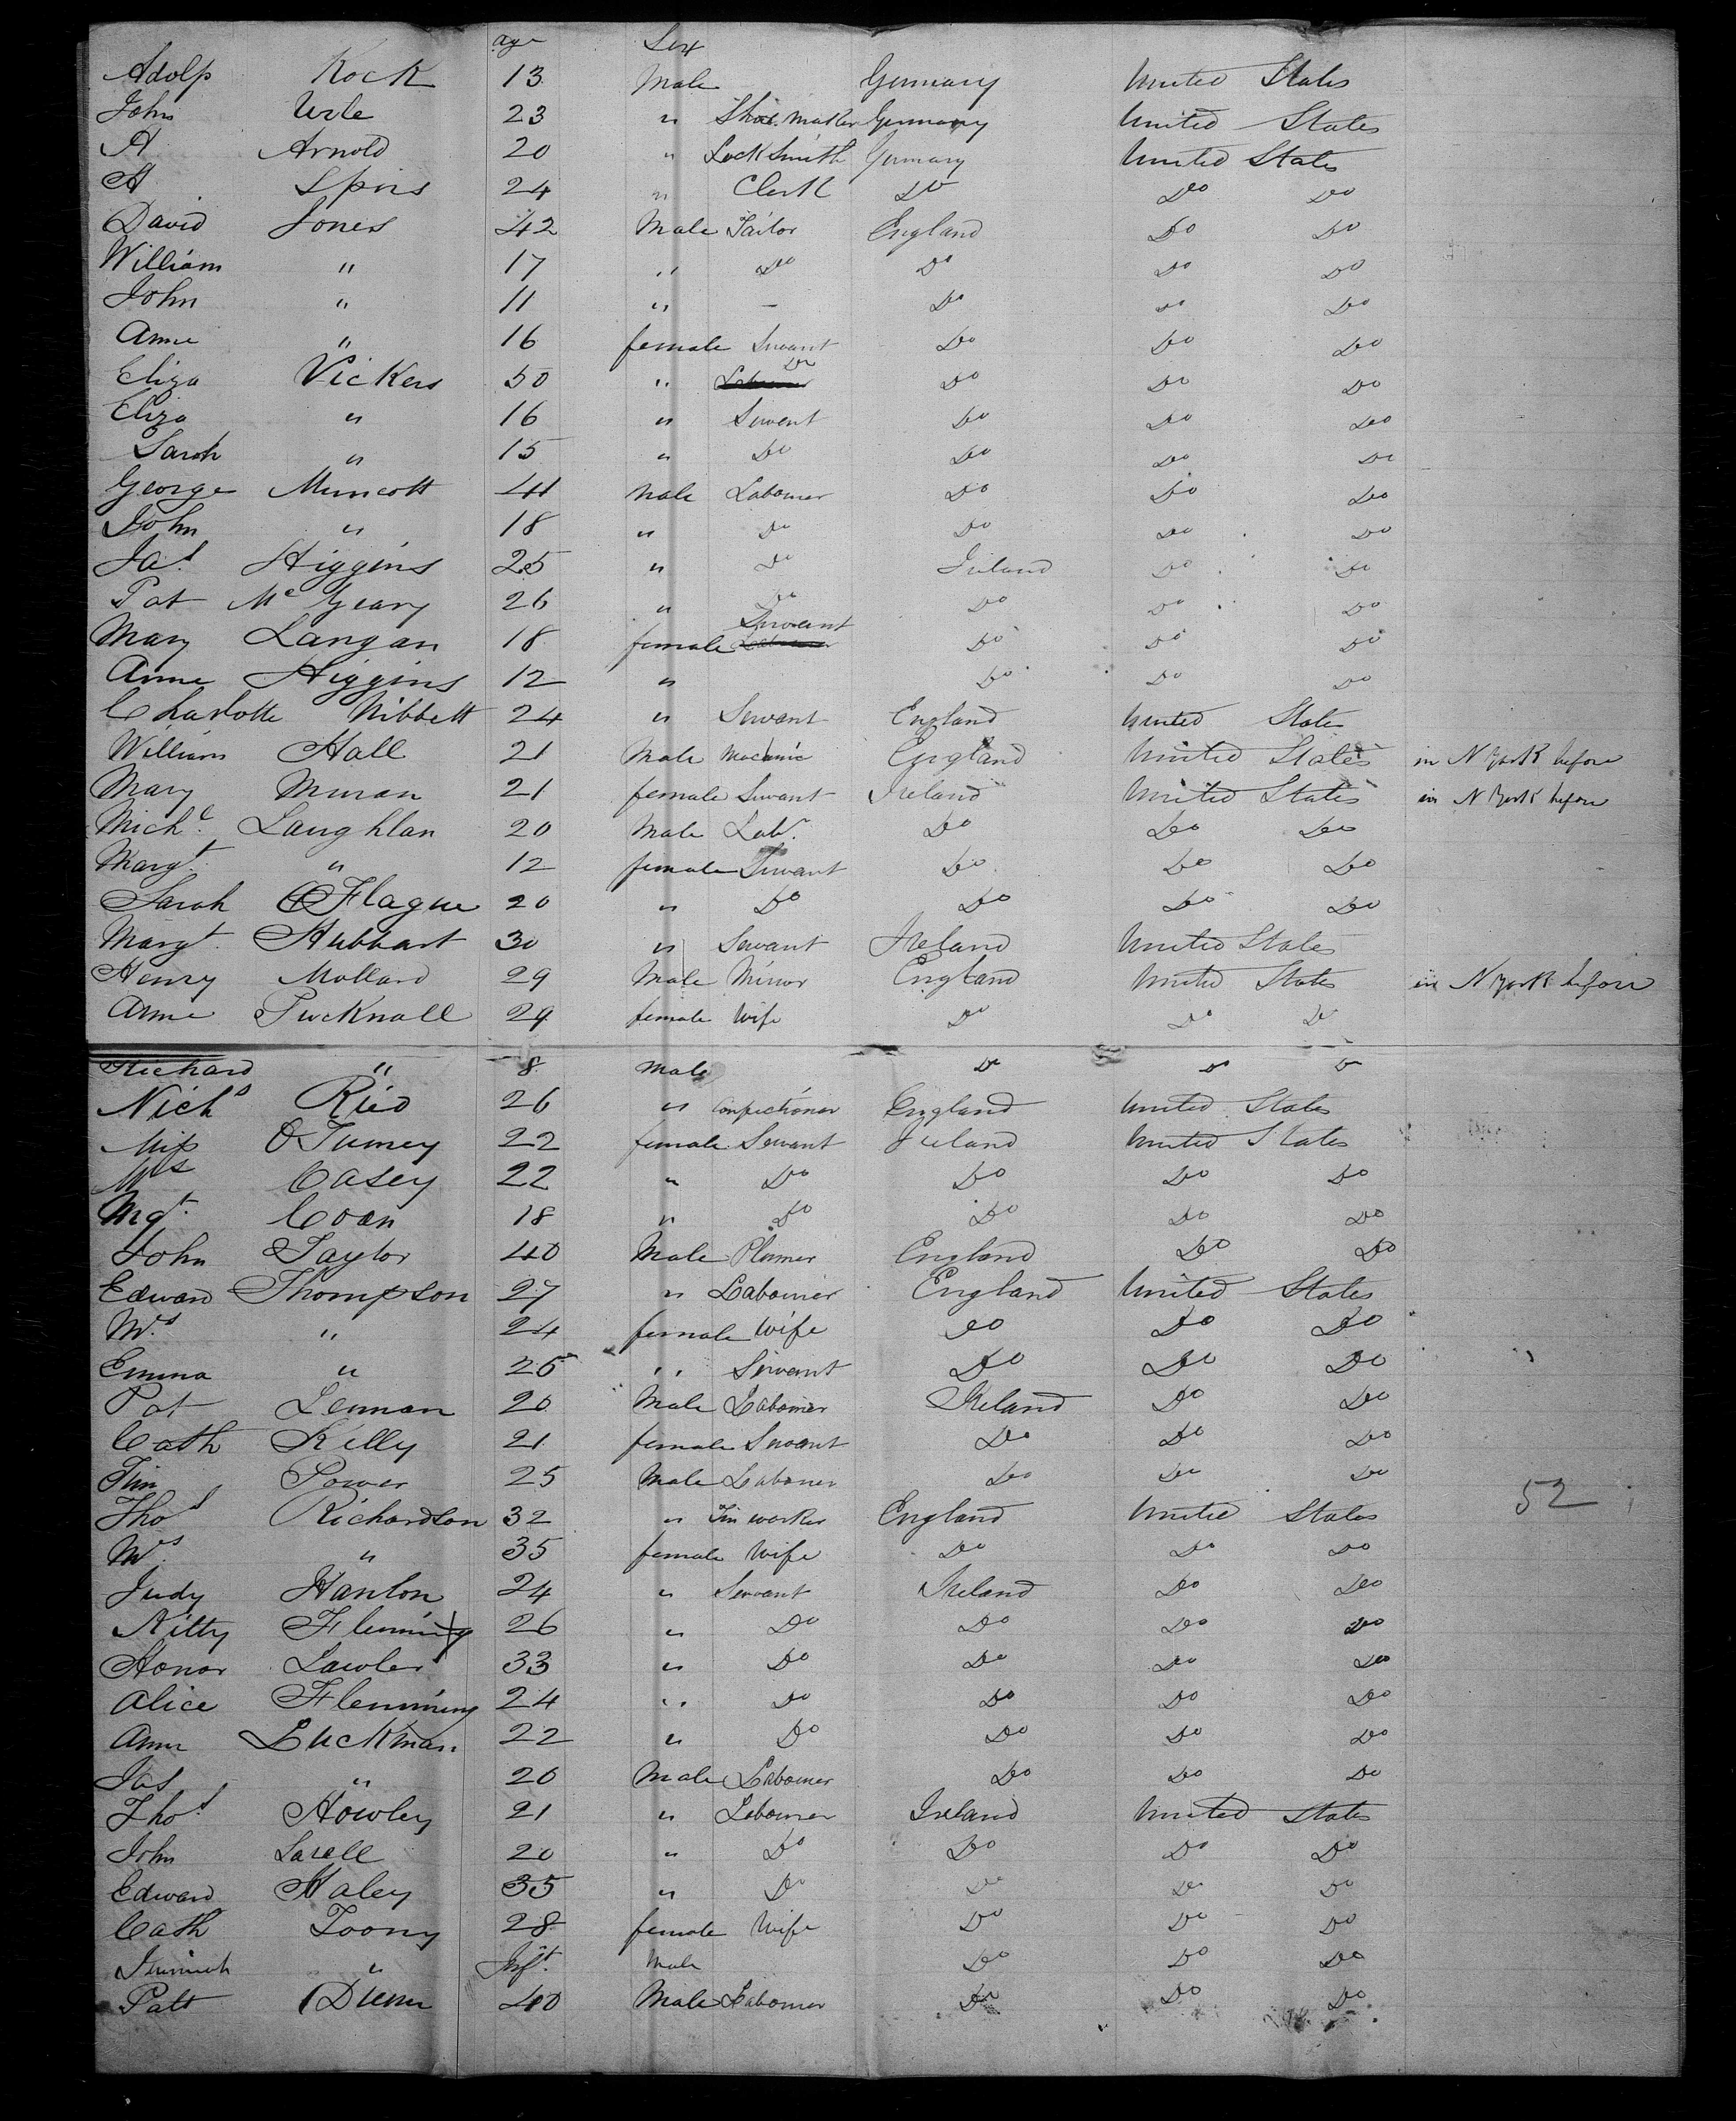 age Sex
Adolf Kock 13 Male Germany United States
John Urle 23 " Shoe Maker Germany United States
A Arnold 20 " Lock Smith Germany United States
A Spiris 24 " Clerk Do Do Do
David Jones 42 Male Tailor England Do Do
William " 17 " Do Do Do Do
John " 11 " - Do Do Do
Anne " 16 female Servant Do Do Do
Eliza Vickers 50 " Do Do Do Do
Eliza " 16 " Servent Do Do Do
Sarah " 15 " Do Do Do Do
George Muncott 41 Male Labourer Do Do Do
John " 18 " Do Do Do Do
Jas Higgins 25 " Do Ireland Do Do
Pat Mc Geary 26 " Do Do Do Do
Mary Langan 18 female Servant Do Do Do
Anne Higgins 12 " Do Do Do
Charlotte Nibbett 24 " Servant England United States
William Hall 21 Male Macanic England United States in N York before
Mary Muran 21 female Servant Ireland United States in N York before
Michl Laughlan 20 Male Labr. Do Do Do
Margt. " 12 female Servant Do Do Do
Sarah O Flague 20 " Do Do Do Do
Margt. Hubbart 30 " Servant Ireland United States
Henry Mollard 29 Male Minor England United States in N York before
Anne Tucknall 29 female Wife Do Do Do
Richard " 8 Male Do Do Do
Nichs Ried 26 " Confectioner England United States
Miss O Tumey 22 female Servant Ireland United States
Ms Casey 22 " Do Do Do Do
Mgt. Coan 18 " Do Do Do Do
John Taylor 40 Male Plumer England Do Do
Edward Thompson 27 " Labourer England United States
Mrs " 24 female Wife Do Do Do
Emma " 25 " Servant Do Do Do
Pat Lennan 20 Male Labourer Ireland Do Do
Cath Kelly 21 female Servant Do Do Do
Tim Power 25 Male Labourer Do Do Do
Thos Richardson 32 " Tin worker England United States 52
Mrs " 35 female Wife Do Do Do
Judy Hanlon 24 " Servant Ireland Do Do
Kitty Flemming 26 " Do Do Do Do
Honor Lawler 33 " Do Do Do Do
Alice Flemming 24 " Do Do Do Do
Anne Luckman 22 " Do Do Do Do
Jas " 20 Male Labourer Do Do Do
Thos Howley 21 " Labourer Ireland United States
John Lavell 20 " Do Do Do Do
Edward Haley 35 " Do Do Do Do
Cath Toony 28 female Wife Do Do Do
" Inft. Male Do Do Do
Patt Dunn 40 Male Labourer Do Do Do